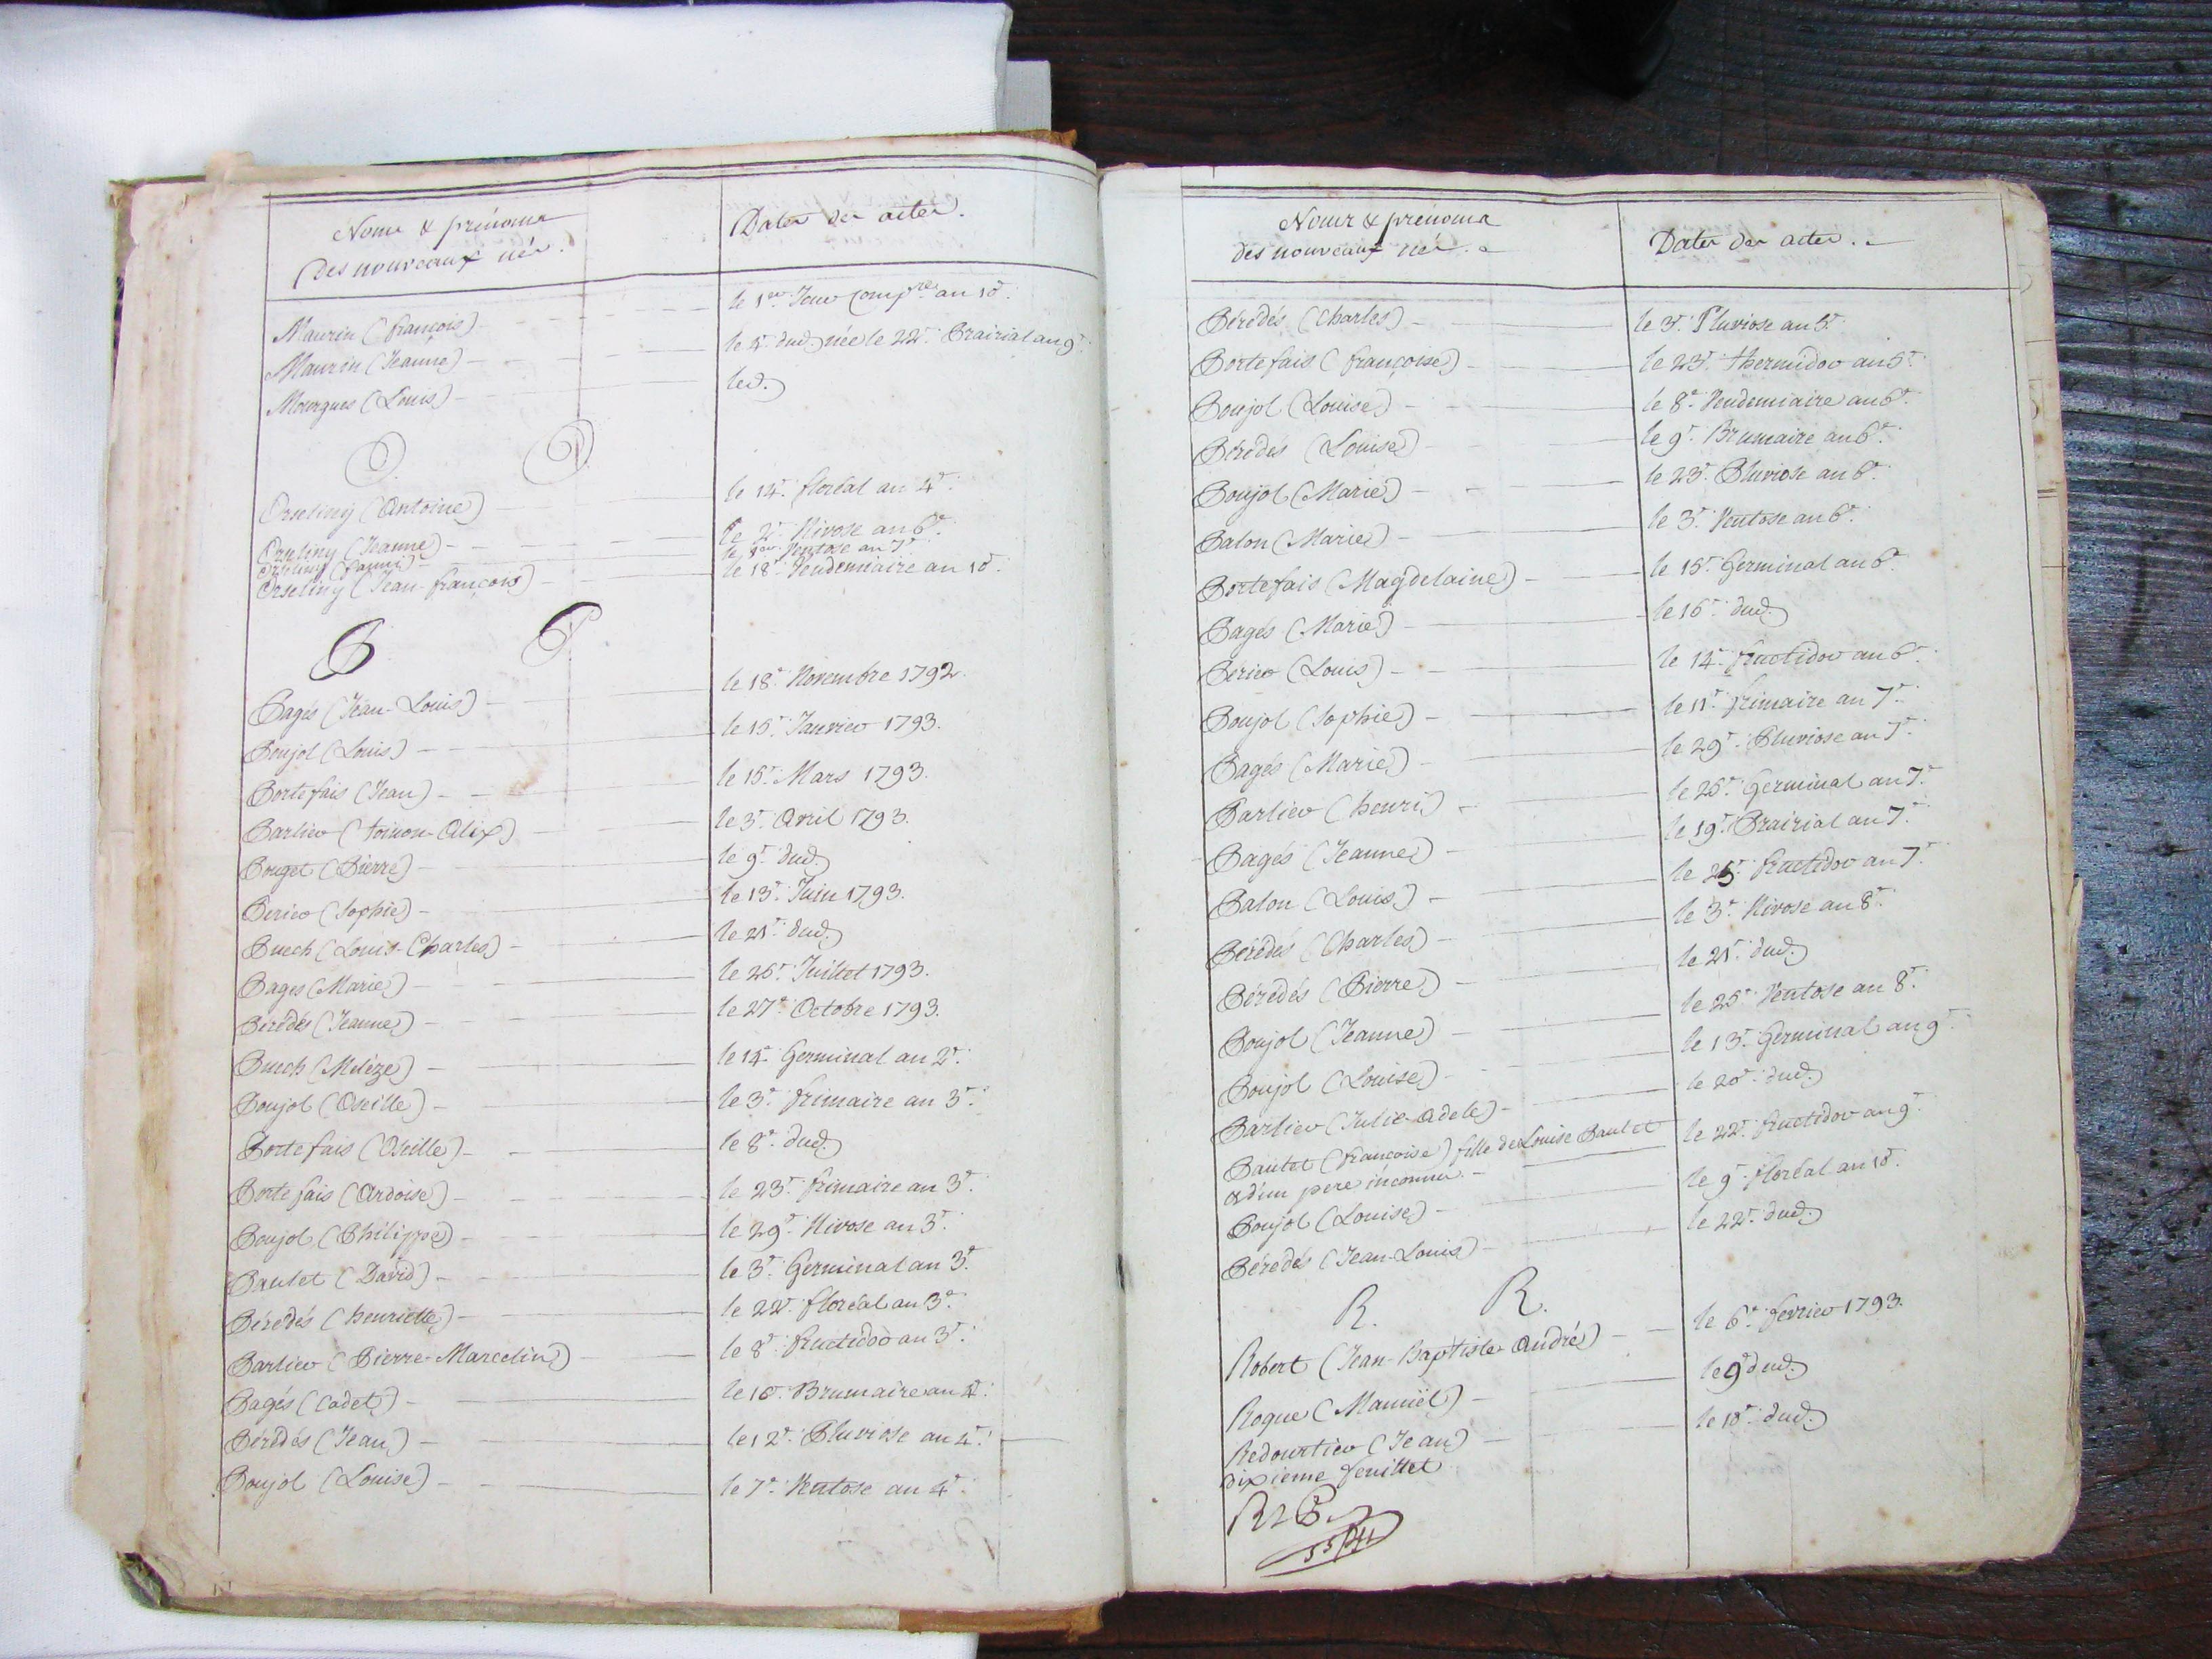 Noms & prénoms
Des nouveaux nés.
Dates des actes.
Maurin (françois) le 1er Jour Compre an 10e.
Maurin (Jeanne) le 4e dud. née le 22e Prairial an 9e.
Mourgues (Louis) led.
O. O.
Orseliny (Antoine) le 14e floréal an 4e.
Orseliny (Jeanne) le 2e Nivose an 6e.
Orseliny (fanni) le 1er Ventose an 7e
Orseliny (Jean-françois) le 18e Vendemiaire an 10e.
P P
Pagés (Jean-Louis) le 18e Novembre 1792.
Poujol (Louis) le 15e Janvier 1793.
Portefais (Jean) le 15e Mars 1793.
Parlier (toinon-Alix) le 3e Avril 1793.
Pouget (Pierre) le 9e dud.
Perier (Sophie) le 13e Juin 1793.
Puech (Louis-Charles) le 21e dud.
Pages (Marie) le 26e Juillet 1793.
Pérédés (Jeanne) le 27e Octobre 1793.
Puech (Méléze) le 14e Germinal an 2e.
Poujol (Oseille) le 3e frimaire an 3e.
Portefais (Oseille) le 8e dud.
Portefais (Ardoise) le 23e frimaire an 3e.
Poujol (Philippe) le 29e Nivose an 3e.
Paulet (David) le 3e Germinal an 3e.
Pérédés (henriette) le 22e floréal an 3e.
Parlier (Pierre-Marcelin) le 8e fructidor an 3e.
Pagés (Cadet) le 16e Brumaire an 4e.
Pérédés (Jean) le 12e Pluviose an 4e.
Poujol (Louise) le 7e Ventose an 4e.
Noms & prénoms
des nouveaux nés.
Dates des actes.
Pérédés (Charles) le 3e Pluviose an 5e.
Portefais (françoise) le 23e thermidor an 5e.
Poujol (Louise) le 8e Vendemiaire an 6e.
Pérédés (Louise) le 9e Brumaire an 6e.
Poujol (Marie) le 23e Pluviose an 6e.
Palon (Marie) le 3e Ventose an 6e.
Portefais (Magdelaine) le 15e Germinal an 6e.
Pagés (Marie) le 16e dud.
Perier (Louis) le 14e fructidor an 6e.
Poujol (Sophie) le 11e frimaire an 7e.
Pagés (Marie) le 29e Pluviose an 7e.
Parlier (henri) le 26e Germinal an 7e.
Pagés (Jeanne) le 19e Prairial an 7e.
Palon (Louis) le 25e fructidor an 7e.
Pérédés (Charles) le 3e Nivose an 8e.
Pérédés (Pierre) le 21e dud.
Poujol (Jeanne) le 25e Ventose an 8e.
Poujol (Louise) le 13e Germinal an 9e.
Parlier (Julie-Adele) le 20e dud.
Paulet (françoise) fille de Louise Paulet le 22e fructidor an 9e.
& d'un pere inconnu.
Poujol (Louise) le 9e floréal an 10e.
Pérédés (Jean-Louis) le 22e dud.
R. R.
Robert (Jean-Baptiste André) le 6e fevrier 1793.
Roque (Manuël) le 9e dud.
Redourtier (Jean) le 18e dud.
dixieme feuillet